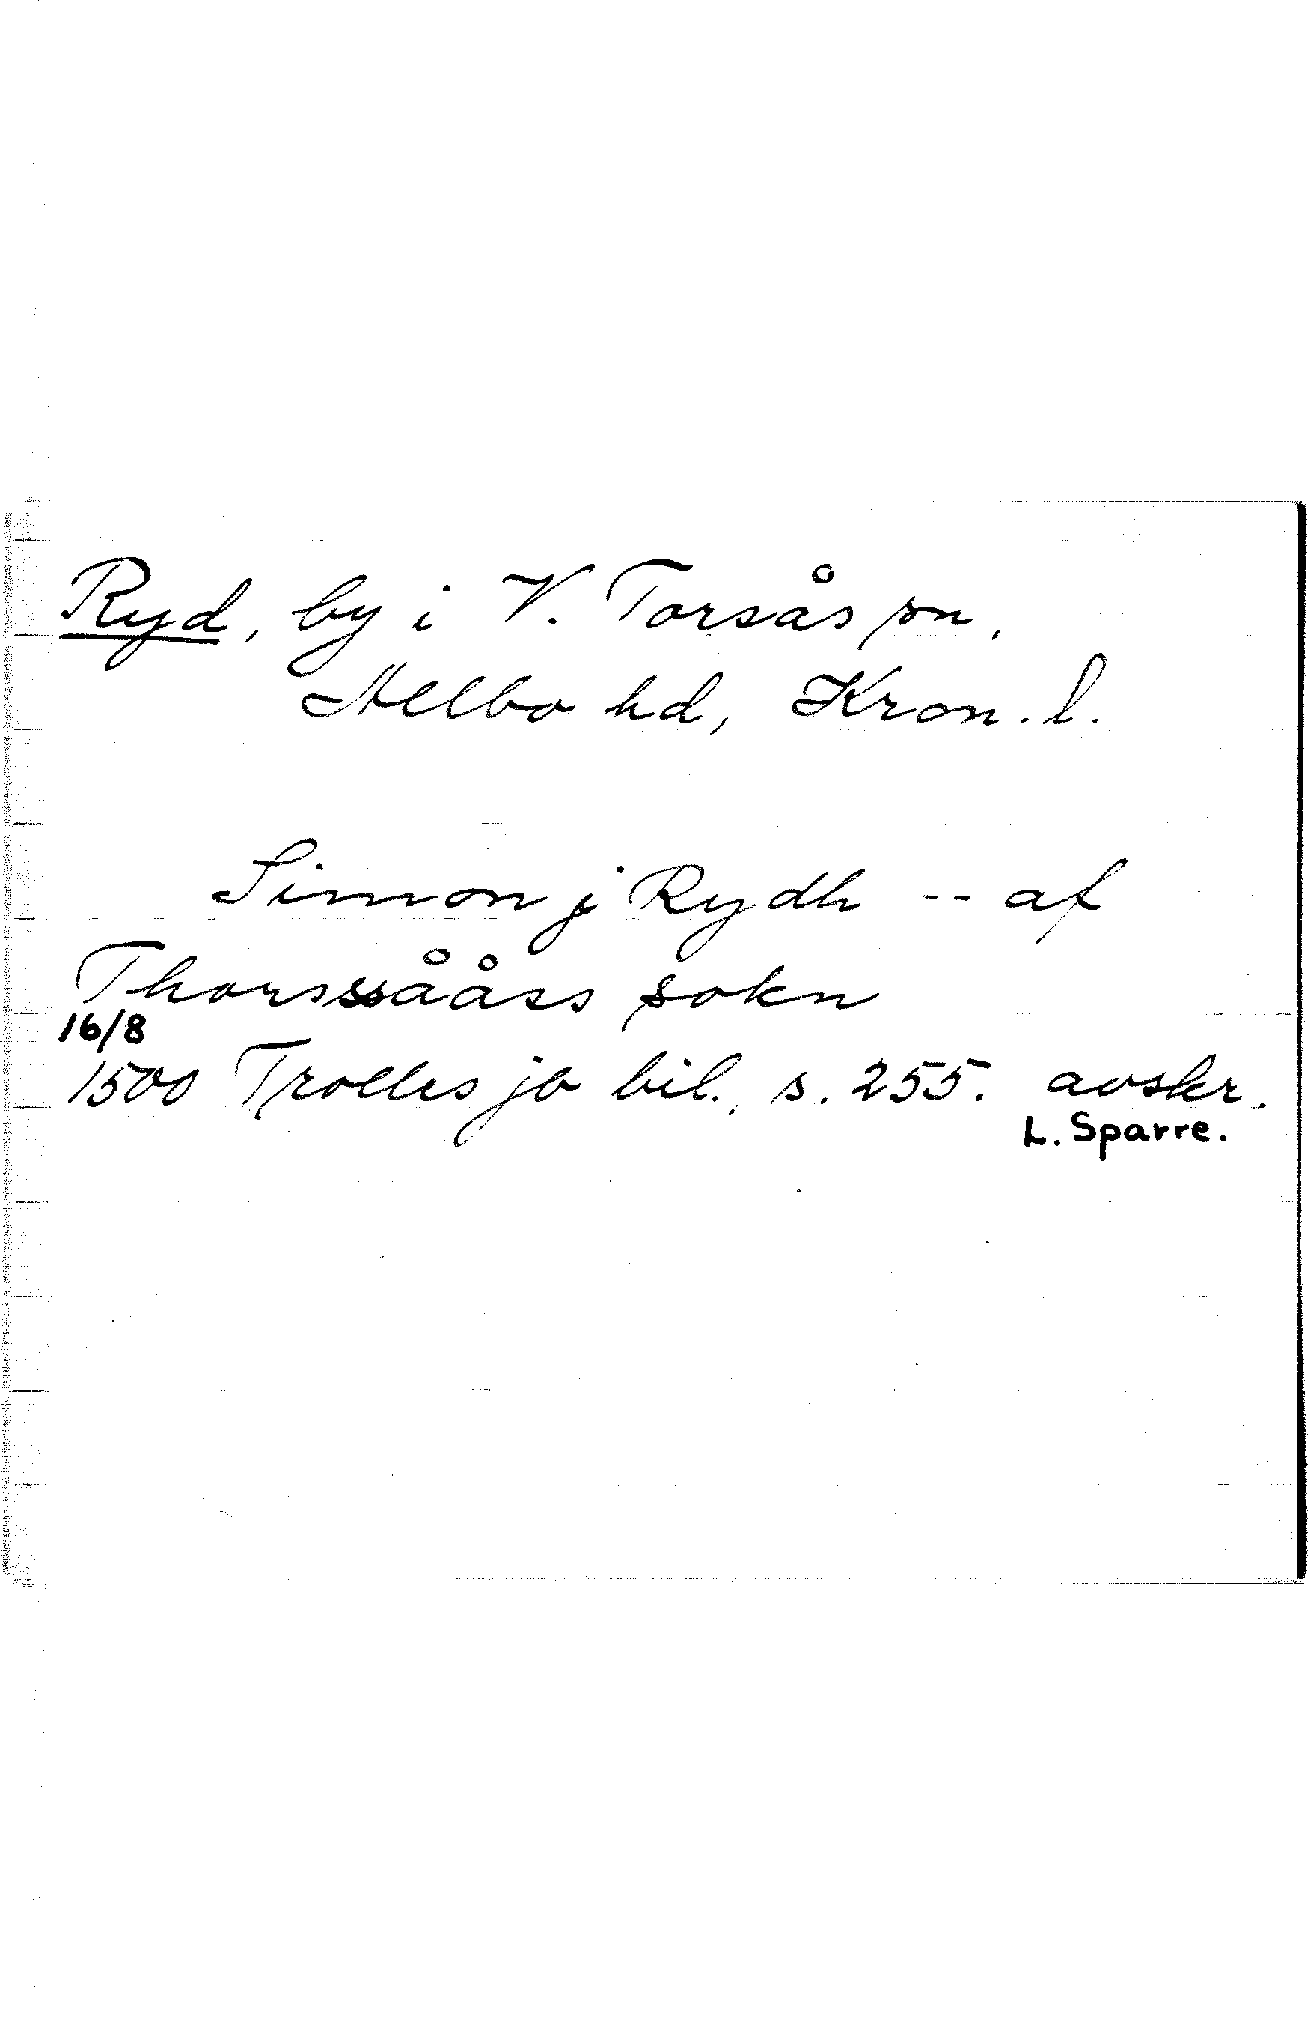 Ryd, by i V. Torsås sn,
Allbo hd, Kron. l.
Simon j Rydh -- af
Thorsssååss sokn
16/8
1500 Trolles jb bil., s. 255. avskr.
L. Sparre.